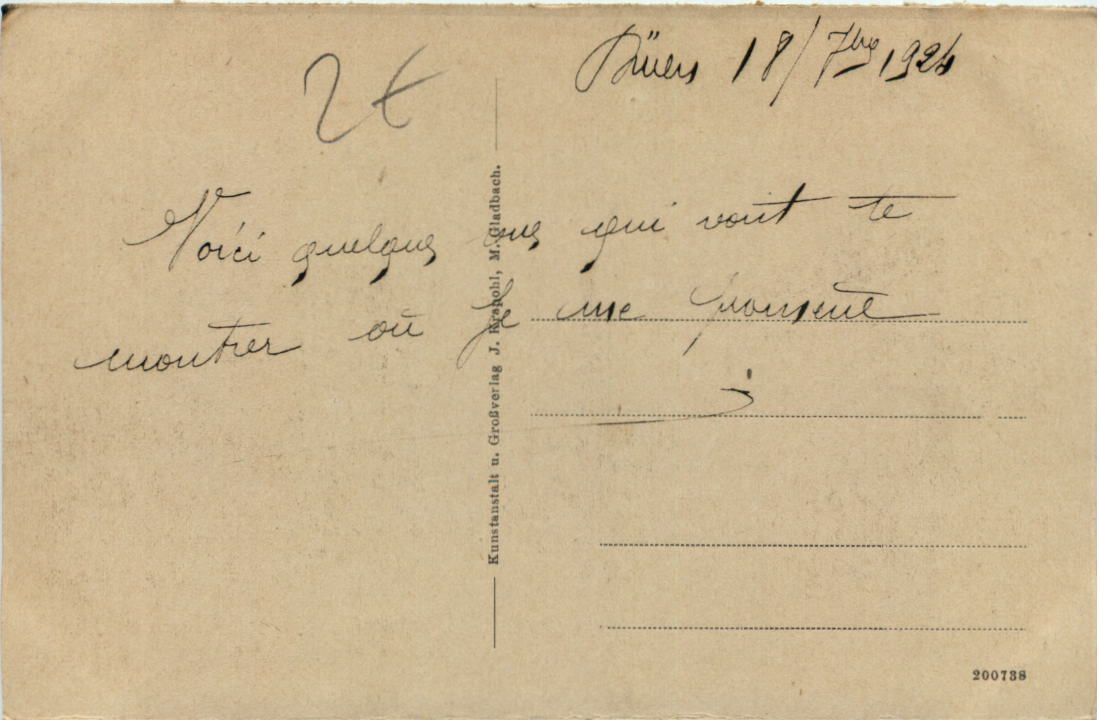 18/7bre 1924
2€
Voici quelques vues qui vont te
montrer où je me promène
Kunstanstalt u. Großverlag J. Krapohl, M. Gladbach.
200738